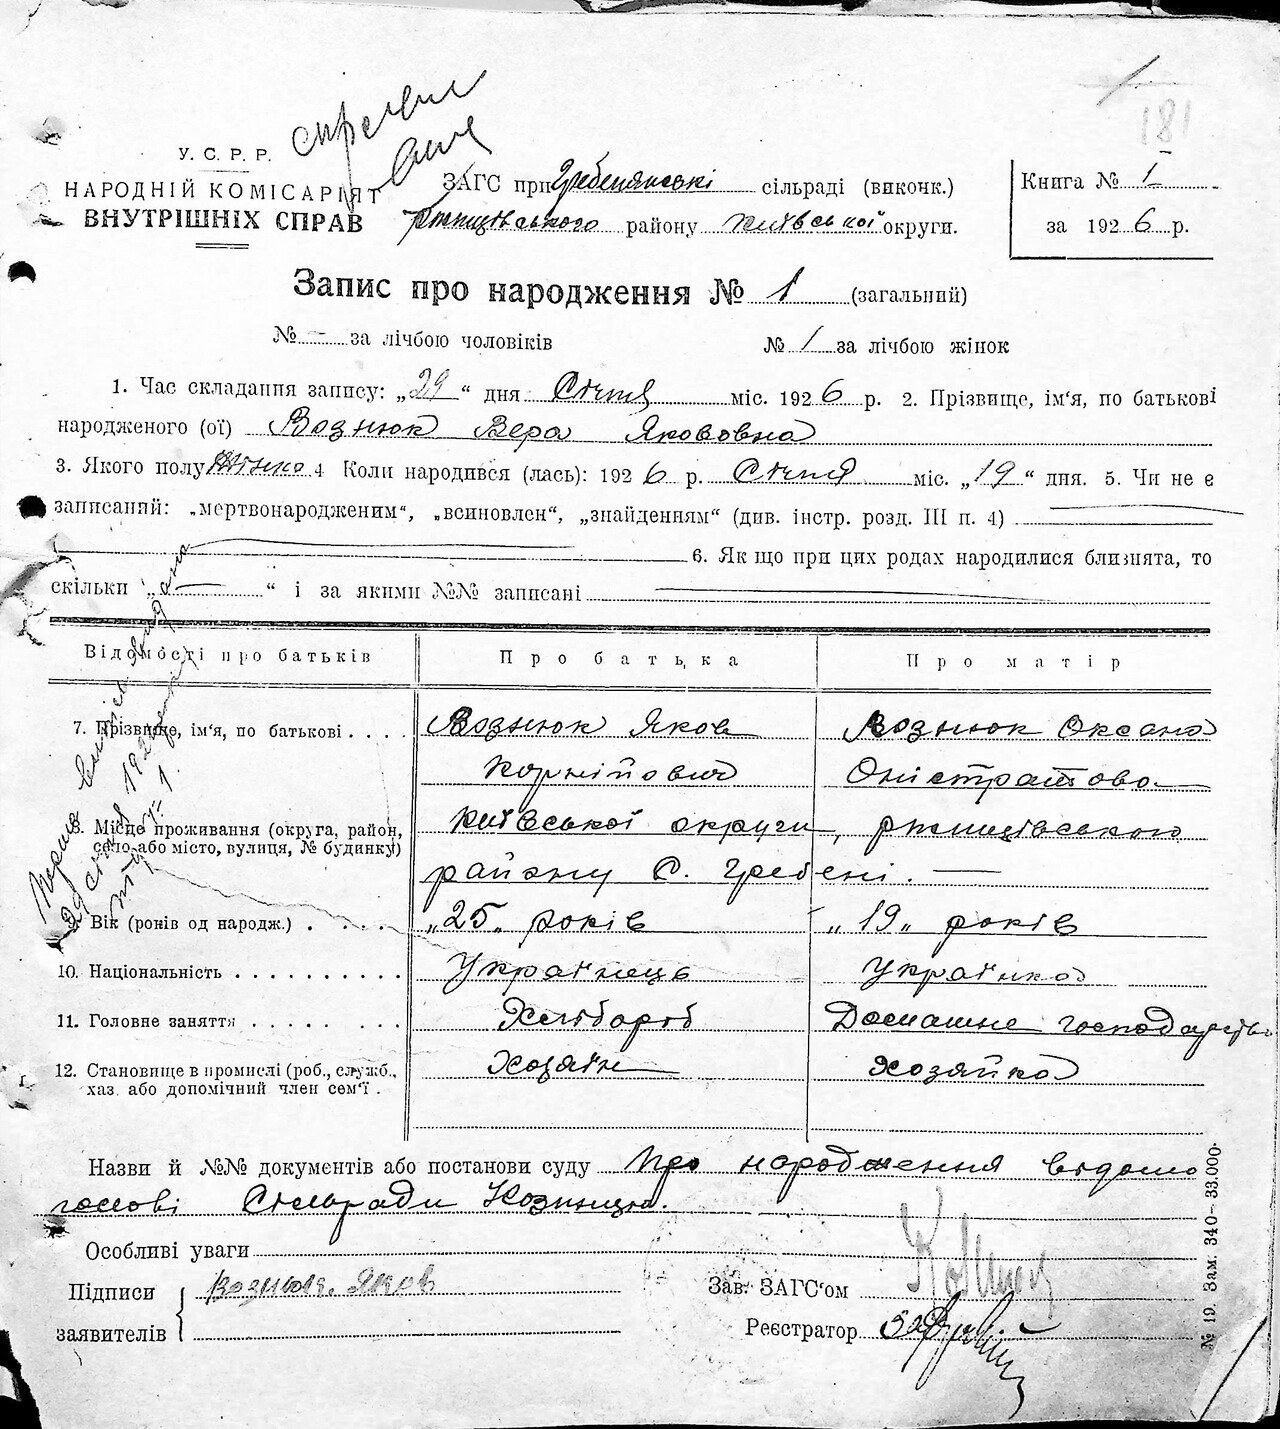 181
У. С. Р. Р.
НАРОДНІЙ КОМІСАРІЯТ
ВНУТРІШНІХ СПРАВ
ЗАГС при Гребенянські сільраді (виконк.)
Ржищівського району Київської округи.
Книга № 1
за 1926 р.
Запис про народження № 1 (загальний)
№ - за лічбою чоловіків № 1 за лічбою жінок
1. Час складання запису: „29“ дня Січня міс. 1926 р. 2. Прізвище, ім'я, по батькові
народженого (ої) Вознюк Вера Якововна
3. Якого полу жінка 4 Коли народився (лась): 1926 р. Січня міс. „19“ дня. 5. Чи не є
записаний: „мертвонародженим“, „всиновлен“, „знайденням“ (див. інстр. розд. III п. 4)
6. Як що при цих родах народилися близнята, то
скільки „ — “ і за якими №№ записані
Відомості про батьків Про батька Про матір
7. Прізвище, ім'я, по батькові . . . . Вознюк Яков Вознюк Оксана
Корнійович
8. Місце проживання (округа, район, Київської округи, ржищівського
село або місто, вулиця, № будинку) району С. Гребені. —
Вік (років од народж.) . . . . „25„ років „19„ років
10. Національність . . . . . . . . . . Українець Українка
11. Головне заняття . . . . . . . . Хлібороб Домашнє господарство
12. Становище в промислі (роб., служб., Хозяїн Хозяйка
хаз. або допомічний член сем'ї .
Назви й №№ документів або постанови суду Про народження відомо
голові Сільради
Особливі уваги
Підписи Вознюк Яков Зав. ЗАГС'ом
заявителів Реєстратор
№ 19. Зам. 340—33.000.